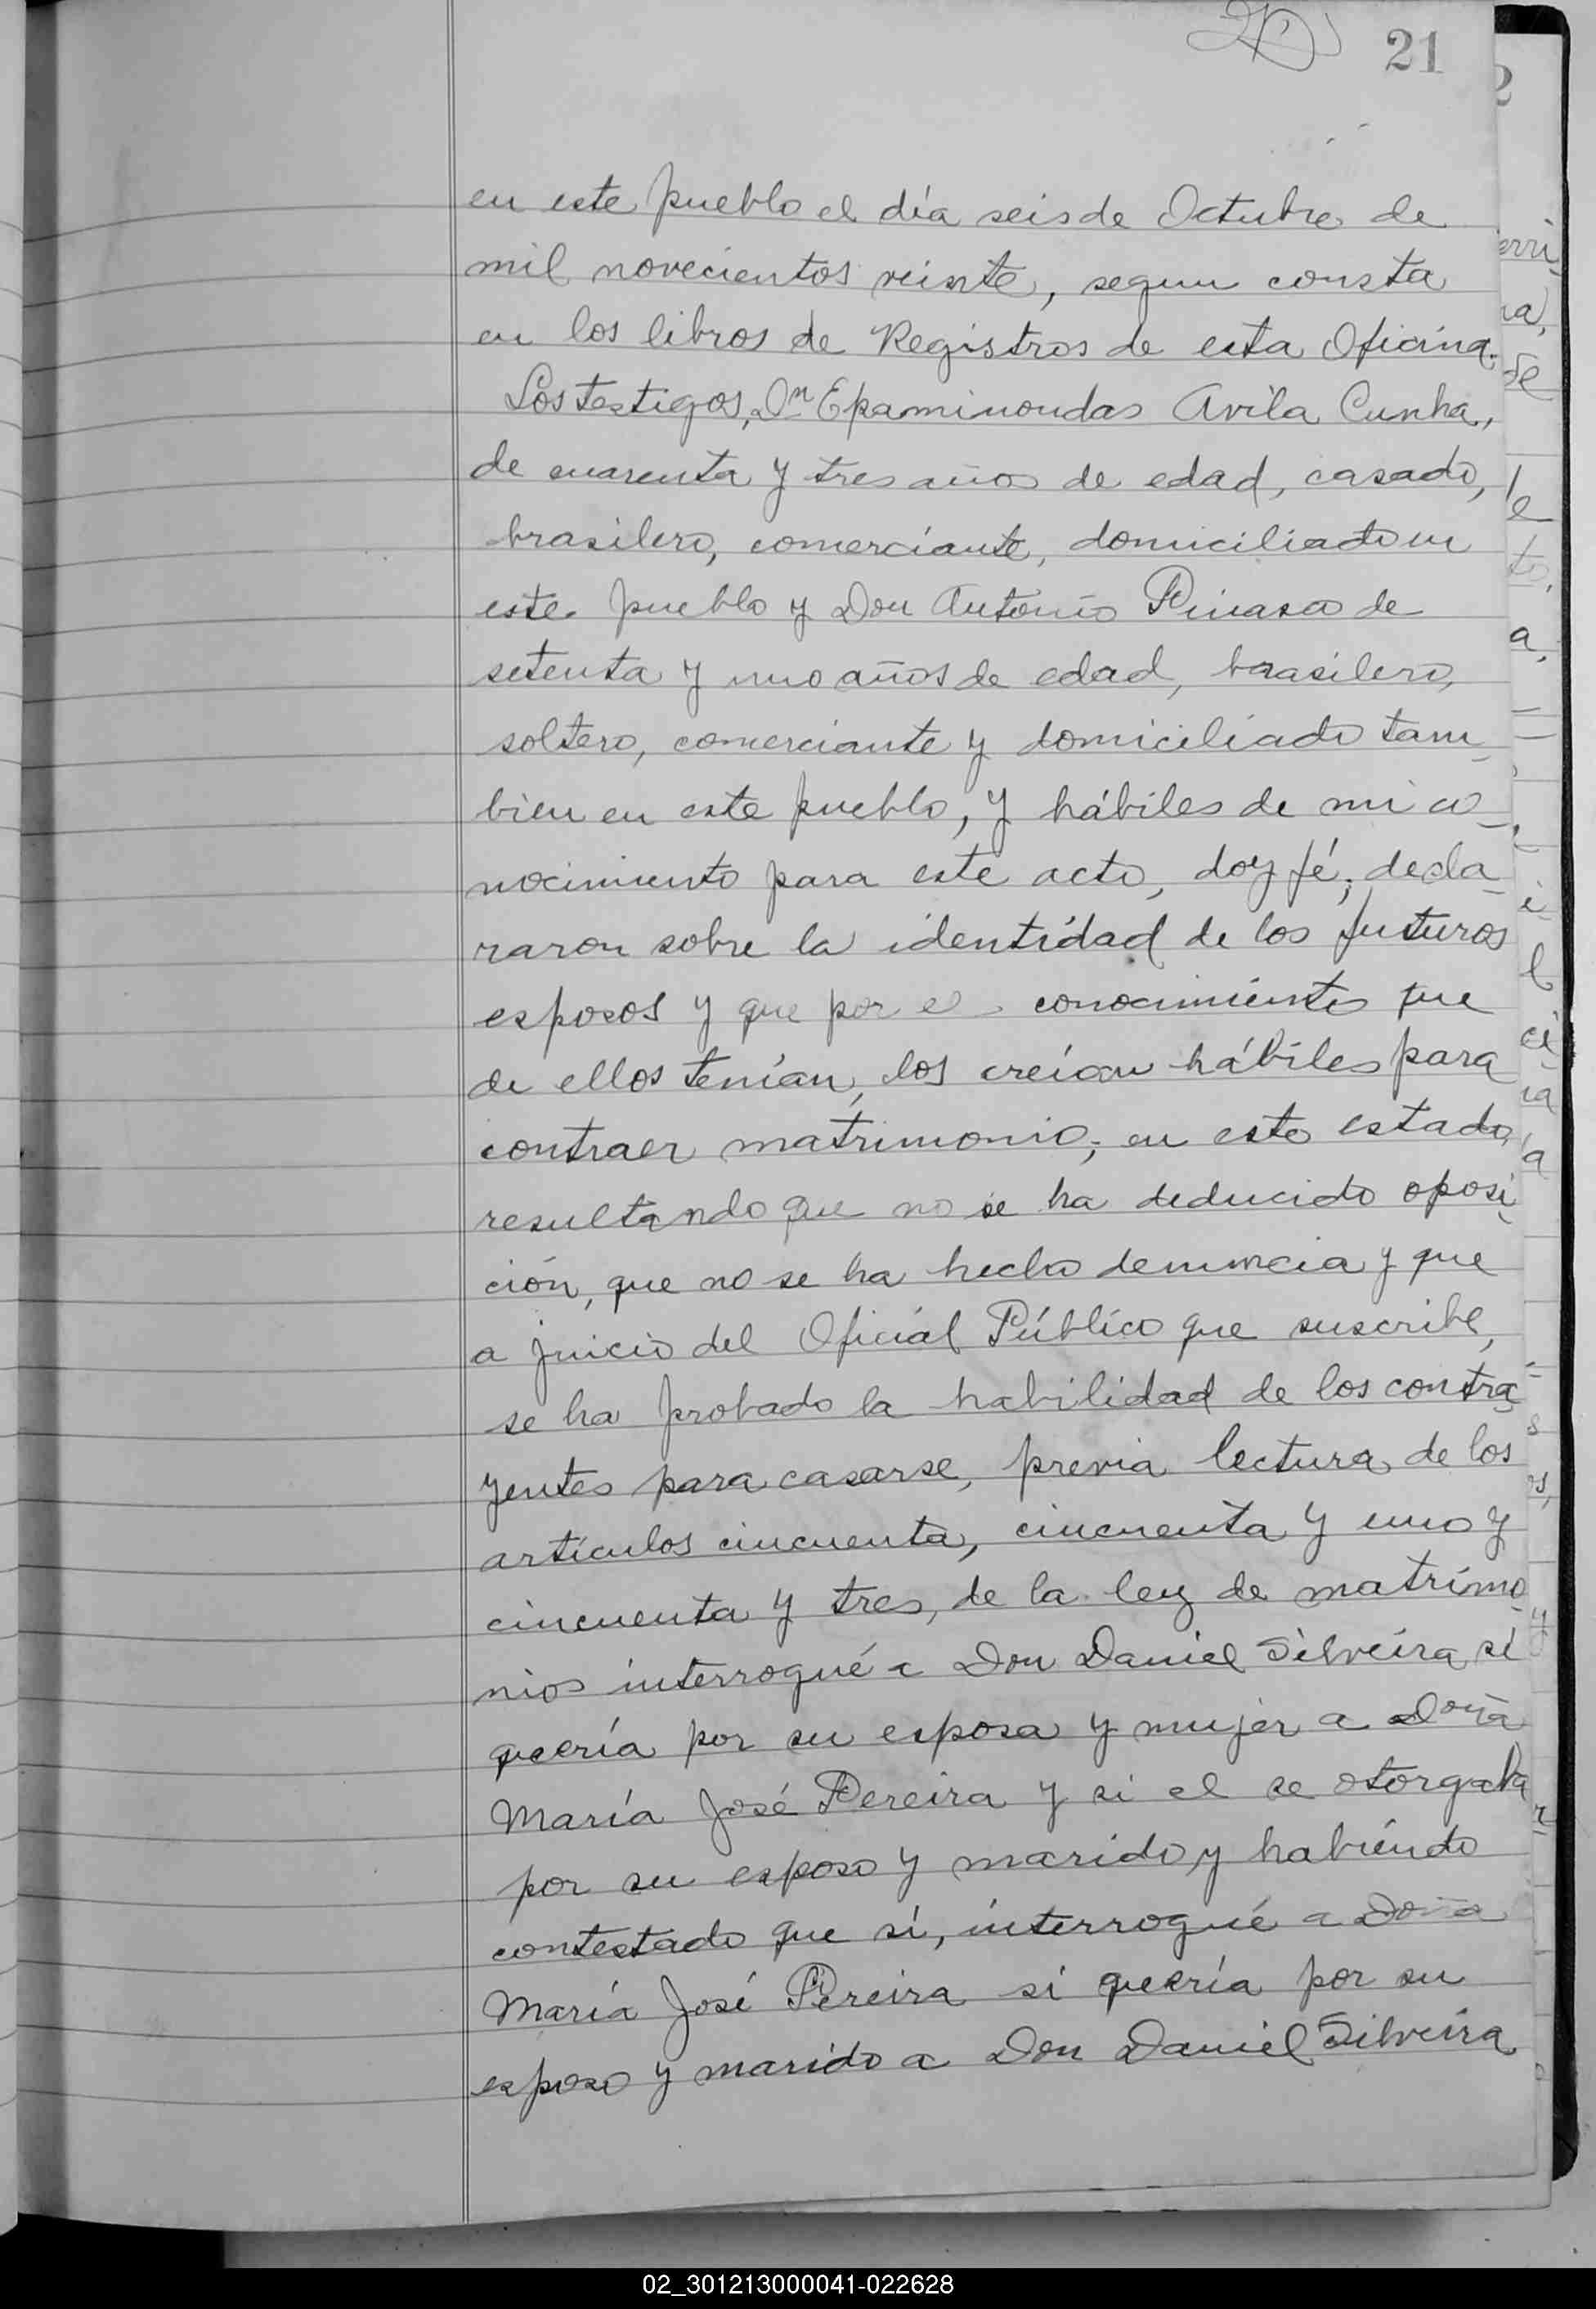 21
en este pueblo el día seis de Octubre de
mil novecientos veinte, segun consta
en los libros de Registros de esta Oficina.
Los testigos, Dn Epaminondas Avila Cunha,
de cuarenta y tres años de edad, casado,
brasilero, comerciante, domiciliado en
este pueblo y Don Antonio de
setenta y uno años de edad, brasilero,
soltero, comerciante y domiciliado tam-
bien en este pueblo, y hábiles de mi co-
nocimiento para este acto, doy fé; decla-
raron sobre la identidad de los futuros
esposos y que por el conocimiento que
de ellos tenían, los creían hábiles para
contraer matrimonio; en este estado,
resultando que no se ha deducido oposi-
ción, que no se ha hecho denuncia y que
a juicio del Oficial Público que suscribe,
se ha probado la habilidad de los contra-
yentes para casarse, previa lectura de los
artículos cincuenta, cincuenta y uno y
cincuenta y tres, de la ley de matrimo-
nios interrogué a Don Daniel Silveira si
quería por su esposa y mujer a Doña
María José Pereira y si el se otorgaba
por su esposo y marido y habiendo
contestado que sí, interrogué a Doña
María José Pereira si quería por su
esposo y marido a Don Daniel Silveira
02_301213000041-022628